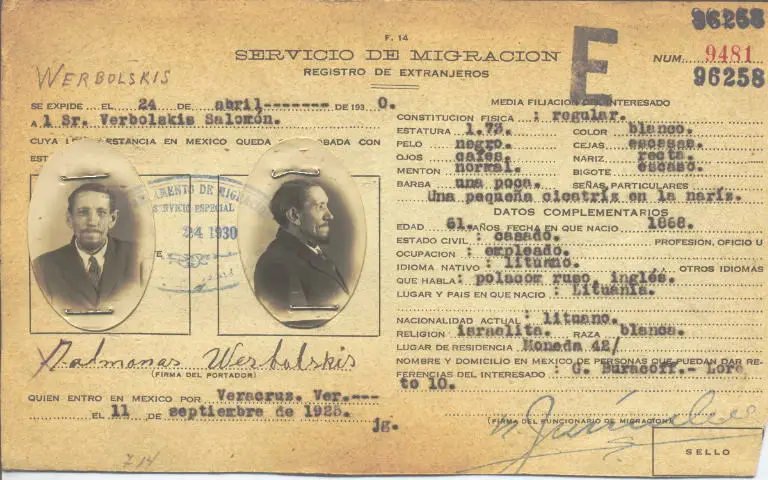 F. 14
SERVICIO DE MIGRACION
REGISTRO DE EXTRANJEROS
E
96258
NUM. 9481
96258
WERBOLSKIS
SE EXPIDE EL 24 DE abril------- DE 1930.
A l Sr. Verbolskis Salomón.
CUYA ESTANCIA EN MEXICO QUEDA CON
EST
MIGRA
SERVICIO ESPECIAL
24 1930
E
Dalmonas Werbolskis
(FIRMA DEL PORTADOR)
QUIEN ENTRO EN MEXICO POR Veracruz. Ver.---
EL 11 DE septiembre de 1925.
jg.
714
MEDIA FILIACION INTERESADO
CONSTITUCION FISICA : regular.
ESTATURA 1.73. COLOR blanco.
PELO negro. CEJAS escasas.
OJOS cafés. NARIZ recta.
MENTON normal. BIGOTE escaso.
BARBA una poca. SEÑAS PARTICULARES
Una pequeña cicatriz en la nariz.
DATOS COMPLEMENTARIOS
EDAD 61. AÑOS FECHA EN QUE NACIO 1868.
ESTADO CIVIL : casado. PROFESION, OFICIO U
OCUPACION : empleado.
IDIOMA NATIVO : lituano. OTROS IDIOMAS
QUE HABLA: polaco, ruso, inglés.
LUGAR Y PAIS EN QUE NACIO : Lituania.
NACIONALIDAD ACTUAL : lituano.
RELIGION israelita. RAZA blanca.
LUGAR DE RESIDENCIA Moneda 42/
NOMBRE Y DOMICILIO EN MEXICO DE PERSONAS QUE PUEDAN DAR RE-
FERENCIAS DEL INTERESADO : G. Buracoff.- Lore
to 10.
(FIRMA DEL FUNCIONARIO DE MIGRACION)
SELLO